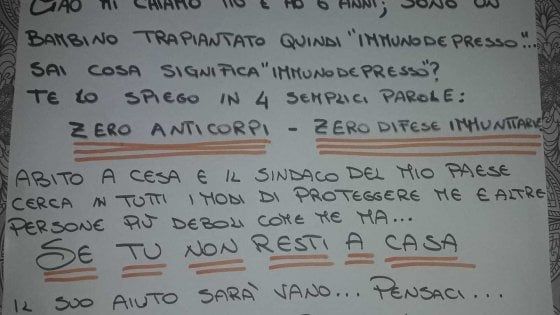 CIAO MI CHIAMO E HO 6 ANNI; SONO UN
BAMBINO TRAPIANTATO QUINDI "IMMUNODEPRESSO"...
SAI COSA SIGNIFICA "IMMUNODEPRESSO"?
TE LO SPIEGO IN 4 SEMPLICI PAROLE:
ZERO ANTICORPI - ZERO DIFESE IMMUNITARIE
ABITO A CESA E IL SINDACO DEL MIO PAESE
CERCA IN TUTTI I MODI DI PROTEGGERE ME E ALTRE
PERSONE PIÙ DEBOLI COME ME MA...
SE TU NON RESTI A CASA
IL SUO AIUTO SARÀ VANO... PENSACI...